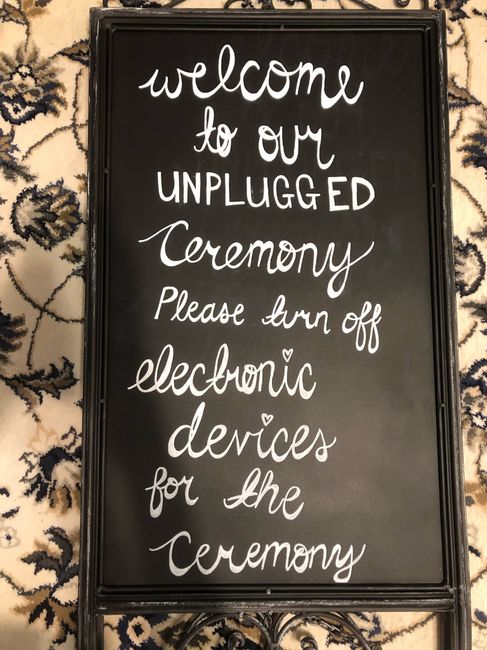 welcome
to our
UNPLUGGED
Ceremony
Please turn off
electronic
devices
for the
Ceremony